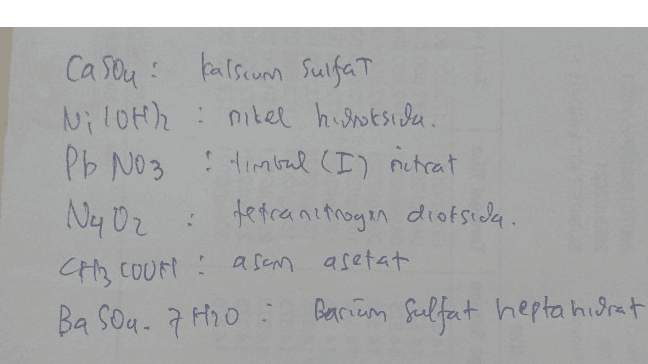 CaSO4 : kalsium sulfat
Ni(OH)2 : nikel hidroksida.
PbNO3 : timbal (I) nitrat
N4O2 : tetranitrogen dioksida.
CH3COOH : asam asetat
BaSO4. 7H2O : Barium sulfat heptahidrat